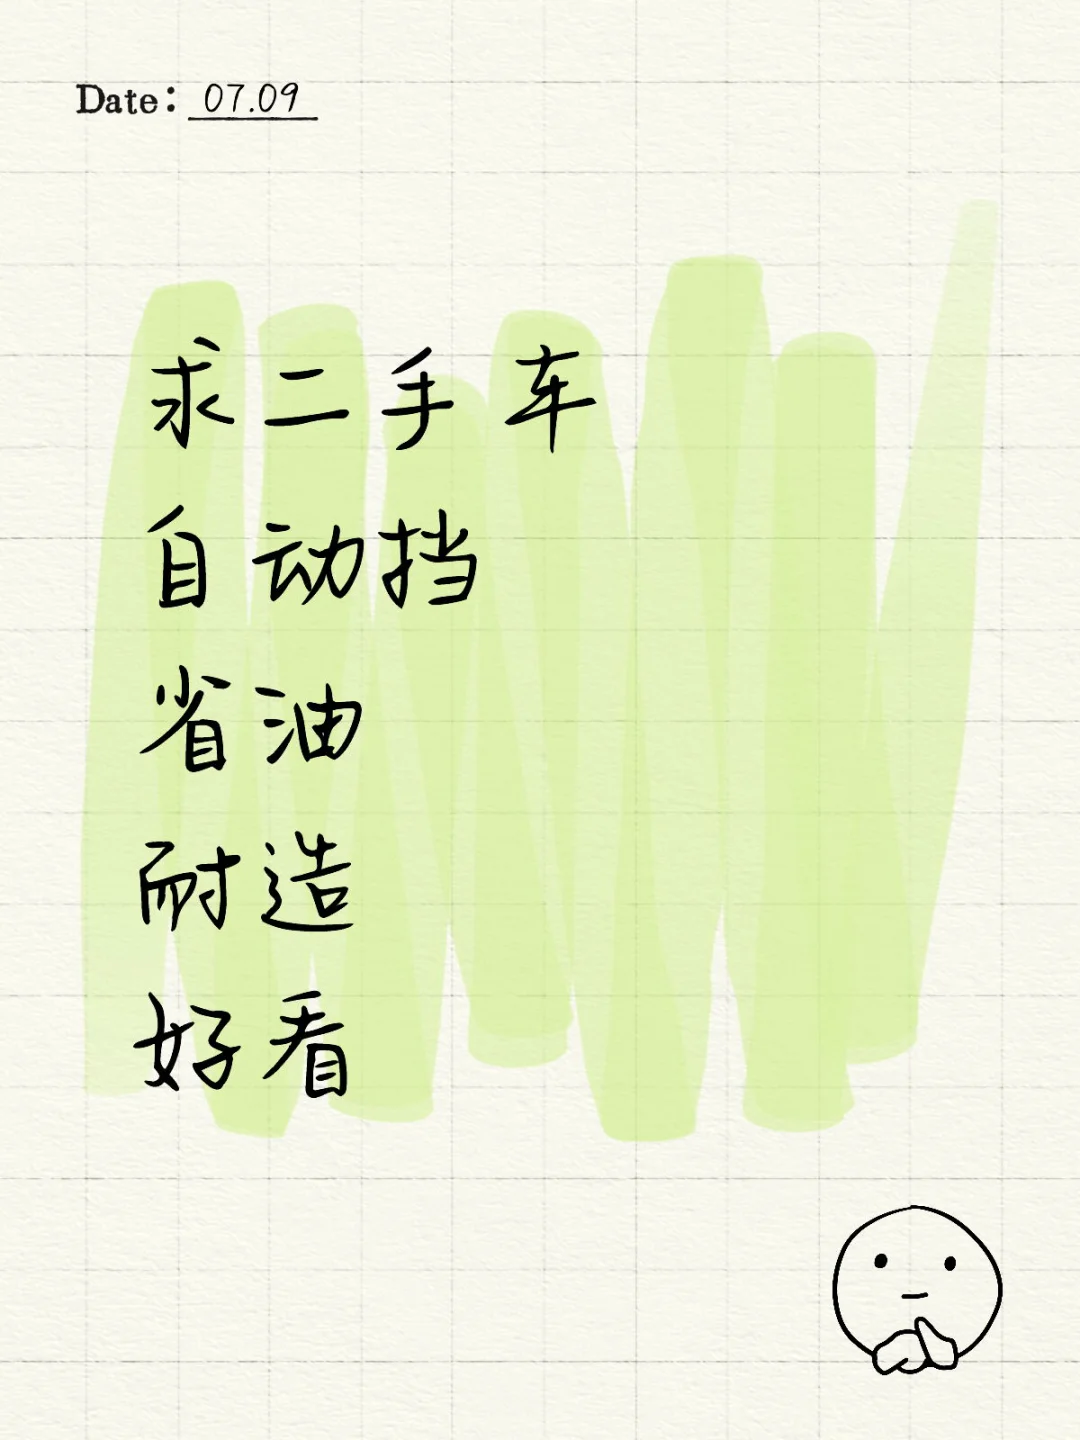 Date: 07.09
求二手车
自动挡
省油
耐造
好看